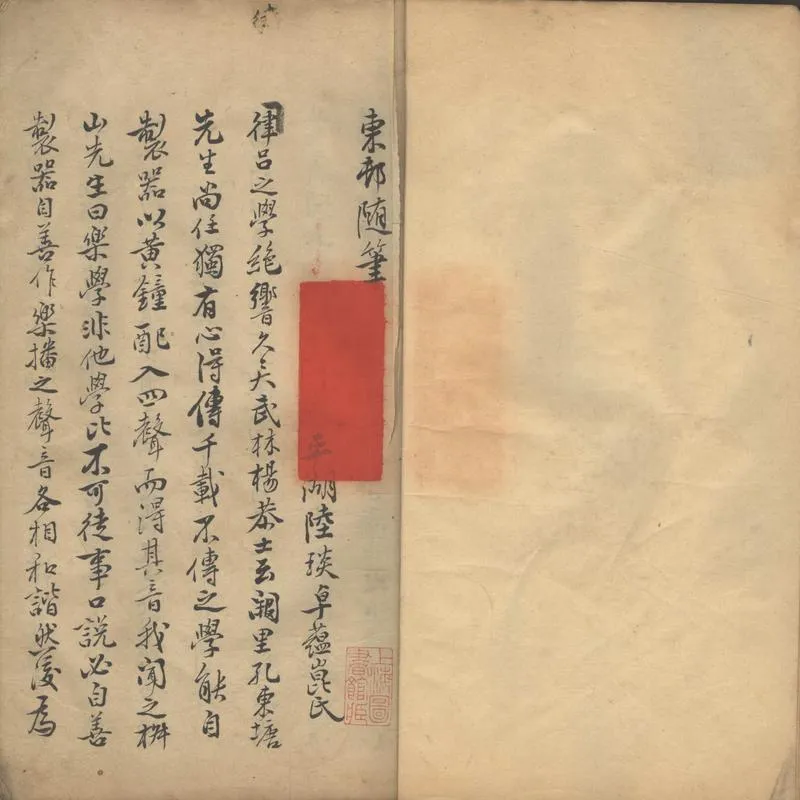 東邨随筆
平湖陸琰卓蘊崑氏
律呂之學絶響久矣武林楊恭士云闕里孔東塘
先生尚任獨有心得傳千載不傳之學能自
製器以黄鐘配入四聲而得其音我聞之桝
山先生曰樂學非他學比不可徒事口說必自善
製器自善作樂播之聲音各相和諧然後為
上海圖
書館藏